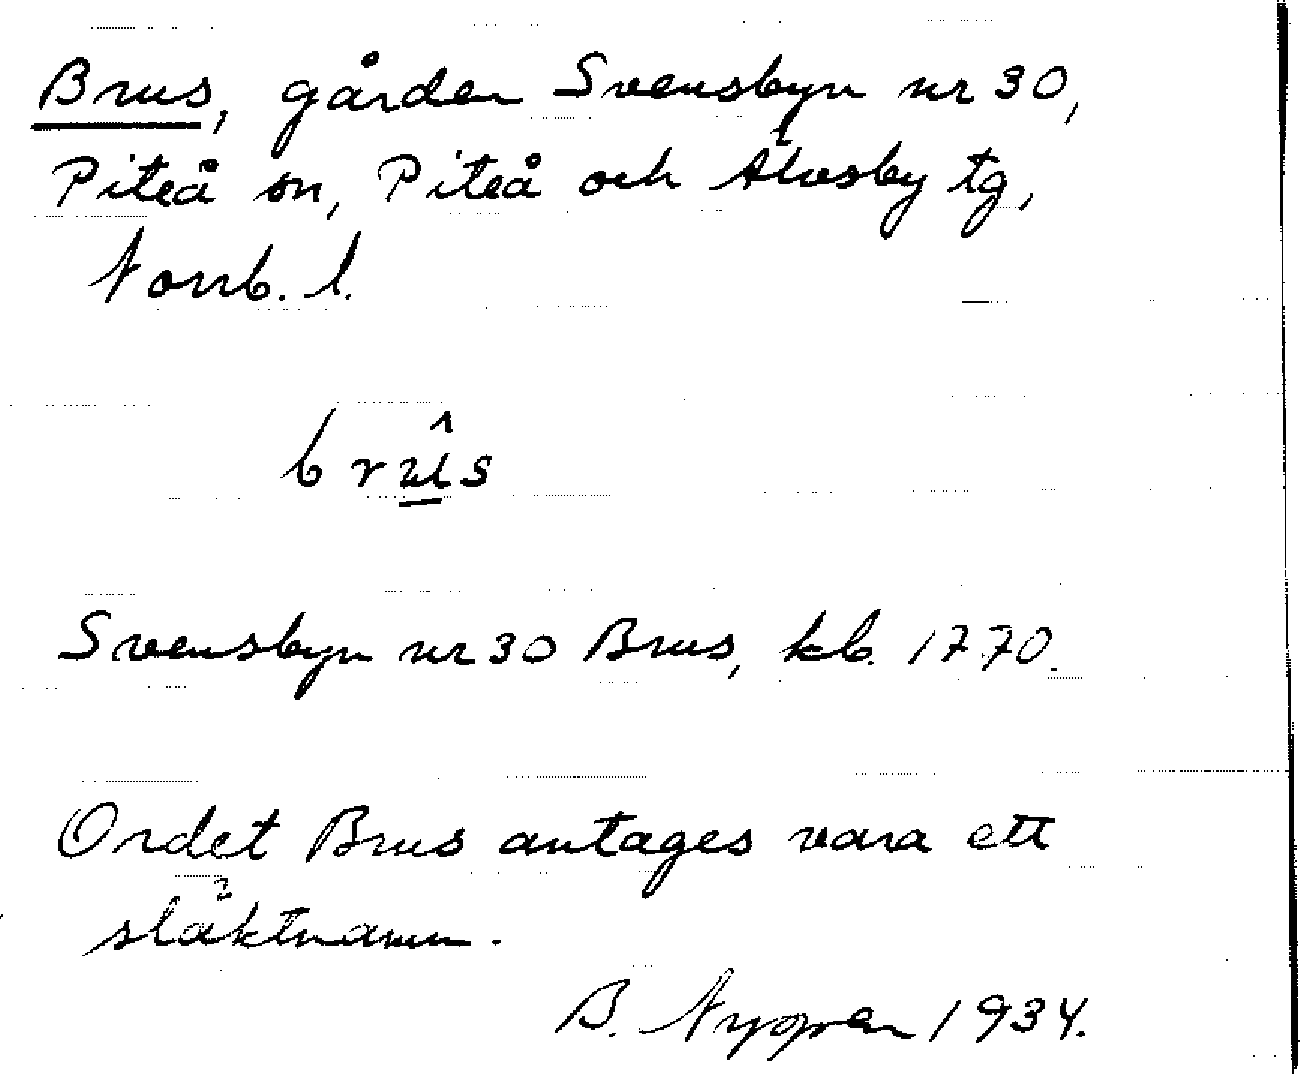 Brus, gården Svensbyn nr 30,
Piteå sn, Piteå och Älvsby tg,
Norrb. l.
brûs
Svensbyn nr 30 Brus, kb. 1770.
Ordet Brus antages vara ett
släktnamn.
B. Nygren 1934.